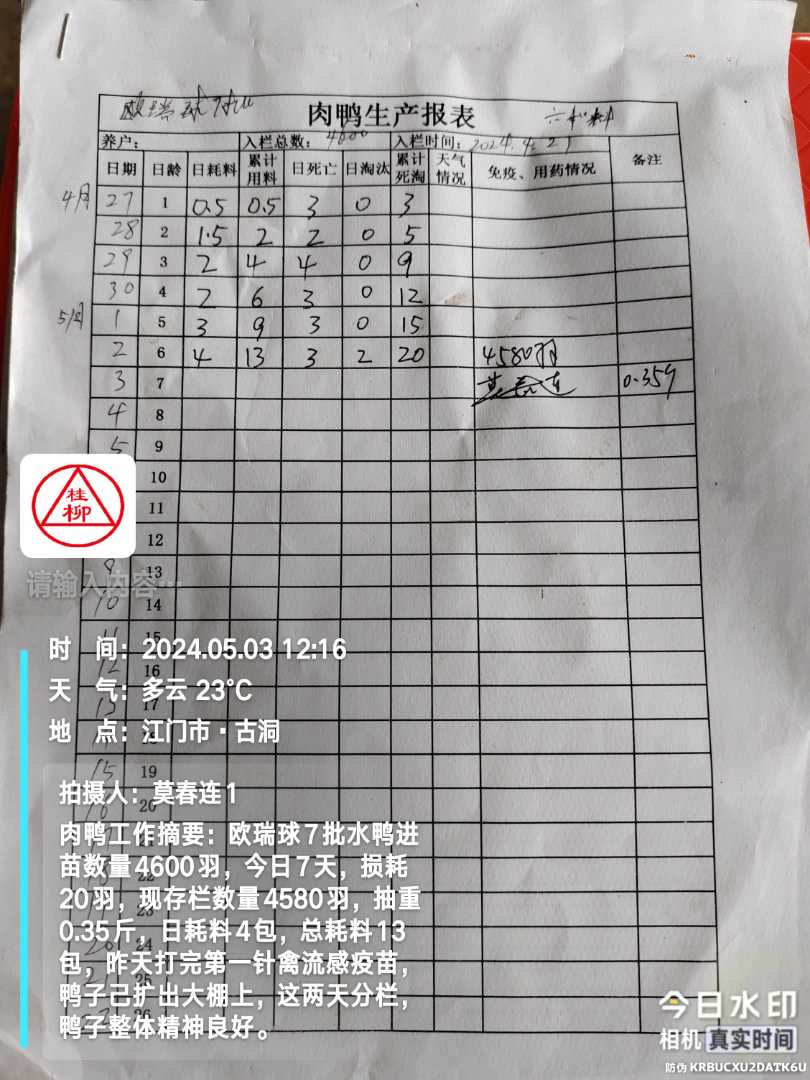 肉鸭生产报表
养户: 入栏总数: 4600 入栏时间: 2024.4.
日期 日龄 日耗料 累计用料 日死亡 日淘汰 累计死淘 天气情况 免疫、用药情况 备注
4月 27 1 0.5 0.5 3 0 3
28 2 1.5 2 2 0 5
29 3 2 4 4 0 9
30 4 2 6 3 0 12
5月 1 5 3 9 3 0 15
2 6 4 13 3 2 20 4580羽
3 7 莫春连 0.359
4 8
5 9
10
11
12
8 13
10 14
11 15
12 16
13 17
18
15 19
20
22
23
24
25
26
桂柳
请输入内容…
时 间：2024.05.03 12:16
天 气：多云 23℃
地 点：江门市·古洞
拍摄人：莫春连1
肉鸭工作摘要：欧瑞球7批水鸭进
苗数量4600羽，今日7天，损耗
20羽，现存栏数量4580羽，抽重
0.35斤，日耗料4包，总耗料13
包，昨天打完第一针禽流感疫苗，
鸭子已扩出大棚上，这两天分栏，
鸭子整体精神良好。
今日水印
相机 真实时间
防伪 KRBUCXU2DATK6U